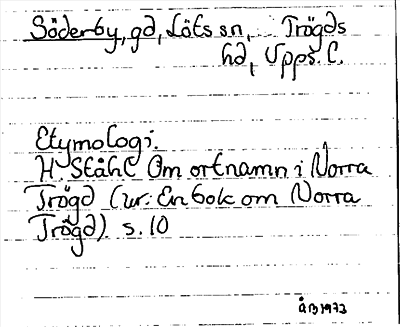 Söderby, gd, Löts sn, Trögds
hd, Upps. l.
Etymologi.
H. Ståhl Om ortnamn i Norra
Trögd (ur: En bok om Norra
Trögd) s. 10
ÅB 1973